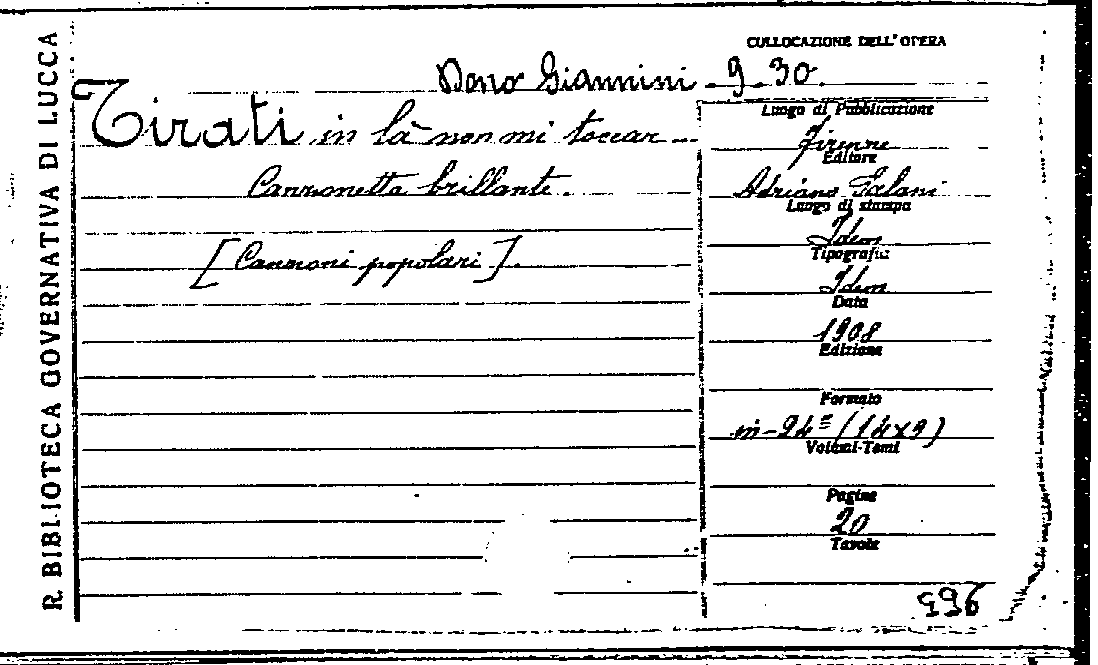 R. BIBLIOTECA GOVERNATIVA DI LUCCA
COLLOCAZIONE DELL'OPERA
Dono Giannini - 9 - 30.
Tirati in là non mi toccar -
Canzonetta brillante.
[Canzoni popolari].
Luogo di Pubblicazione
Firenze
Editore
Adriano Salani
Luogo di stampa
Idem
Tipografia
Idem
Data
1908
Edizione
Formato
in-24= (14x9)
Volumi-Tomi
Pagine
20
Tavole
996